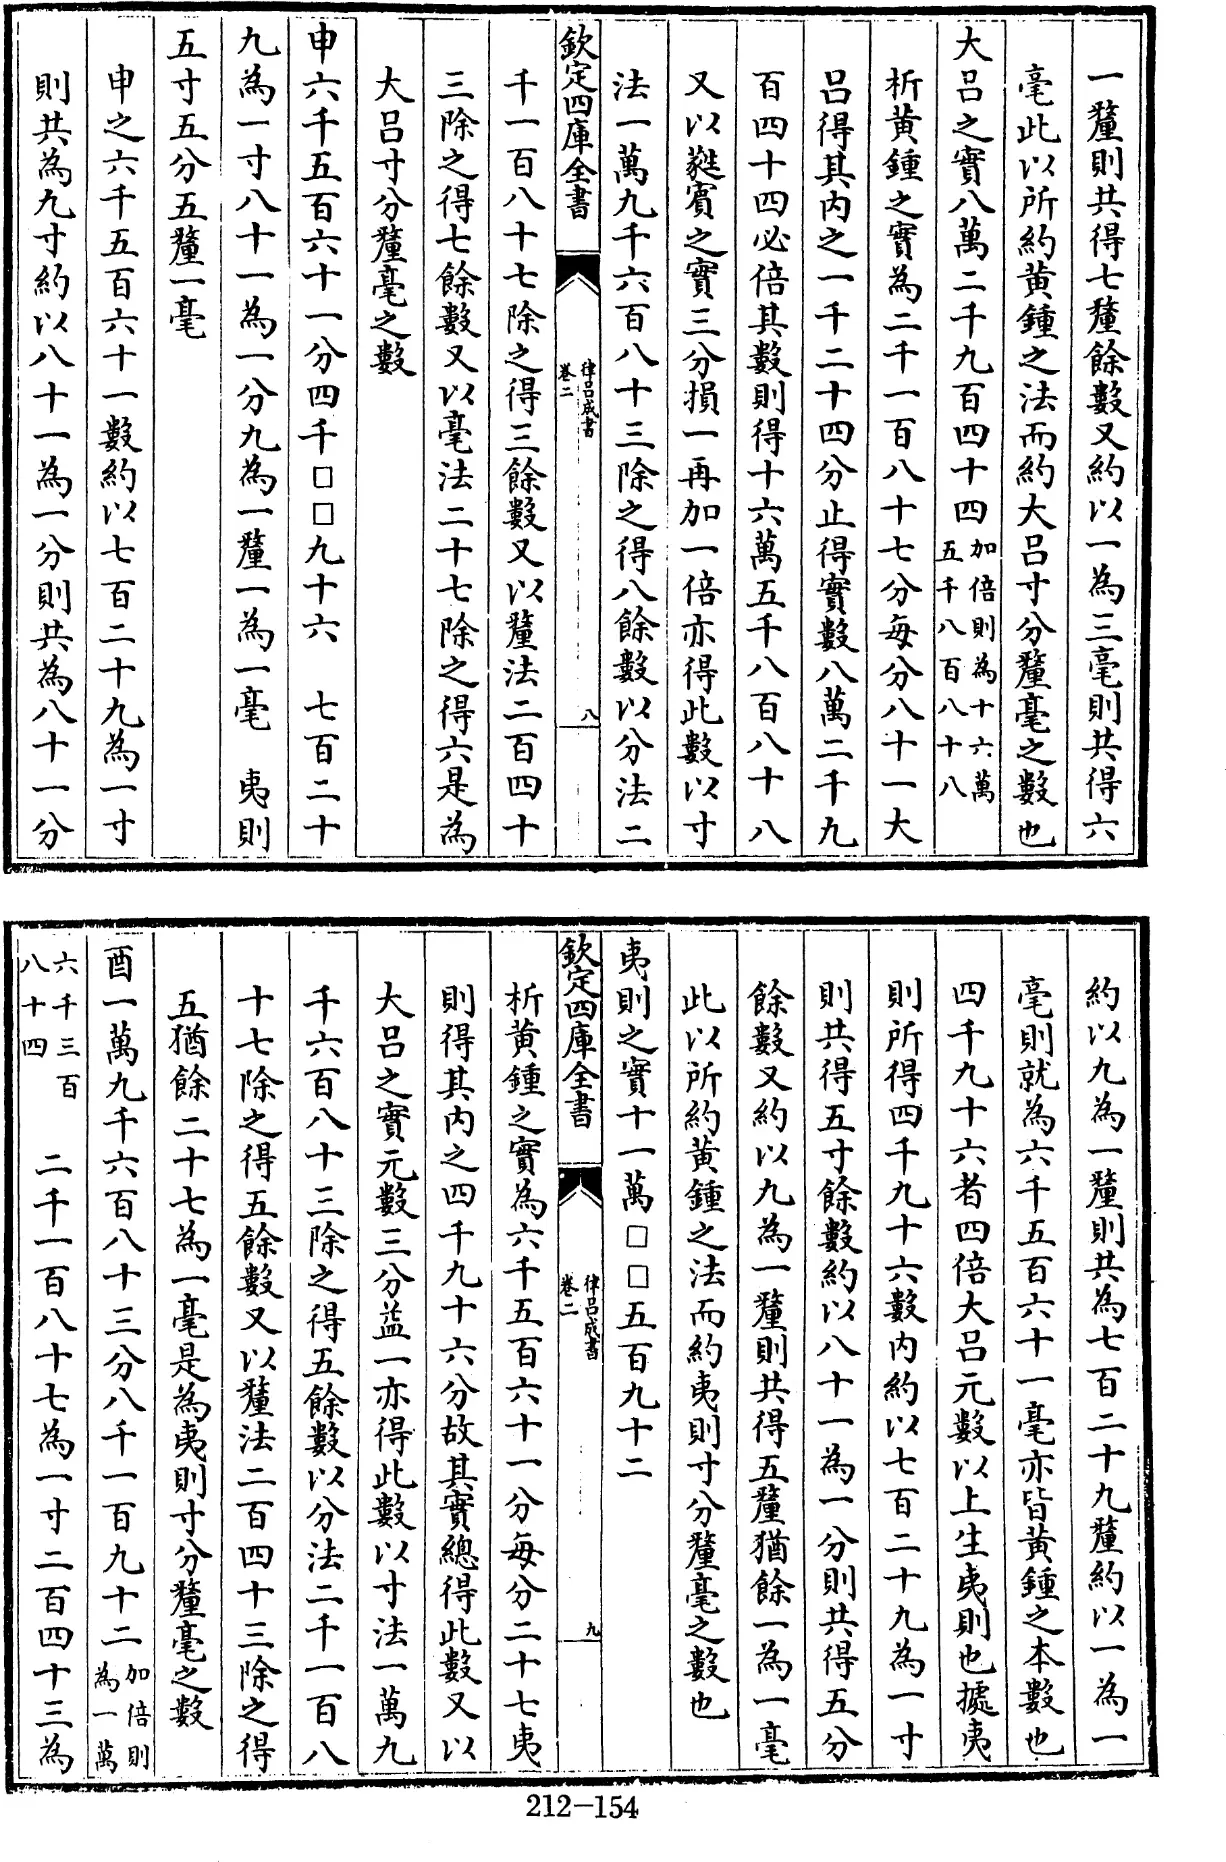 一釐則共得七釐餘數又約以一為三毫則共得六
毫此以所約黃鍾之法而約大呂寸分釐毫之數也
大呂之實八萬二千九百四十四加倍則為十六萬五千八百八十八
析黃鍾之實為二千一百八十七分每分八十一大
呂得其内之一千二十四分止得實數八萬二千九
百四十四必倍其數則得十六萬五千八百八十八
又以蕤賓之實三分損一再加一倍亦得此數以寸
法一萬九千六百八十三除之得八餘數以分法二
欽定四庫全書
律呂成書
卷二
八
千一百八十七除之得三餘數又以釐法二百四十
三除之得七餘數又以毫法二十七除之得六是為
大呂寸分釐毫之數
申六千五百六十一分四千□□九十六 七百二十
九為一寸八十一為一分九為一釐一為一毫 夷則
五寸五分五釐一毫
申之六千五百六十一數約以七百二十九為一寸
則共為九寸約以八十一為一分則共為八十一分
約以九為一釐則共為七百二十九釐約以一為一
毫則就為六千五百六十一毫亦皆黃鍾之本數也
四千九十六者四倍大呂元數以上生夷則也據夷
則所得四千九十六數内約以七百二十九為一寸
則共得五寸餘數約以八十一為一分則共得五分
餘數又約以九為一釐則共得五釐猶餘一為一毫
此以所約黃鍾之法而約夷則寸分釐毫之數也
夷則之實十一萬□□五百九十二
欽定四庫全書
律呂成書
卷二
九
析黃鍾之實為六千五百六十一分每分二十七夷
則得其内之四千九十六分故其實總得此數又以
大呂之實元數三分益一亦得此數以寸法一萬九
千六百八十三除之得五餘數以分法二千一百八
十七除之得五餘數又以釐法二百四十三除之得
五猶餘二十七為一毫是為夷則寸分釐毫之數
酉一萬九千六百八十三分八千一百九十二加倍則為一萬
六千三百八十四 二千一百八十七為一寸二百四十三為
212-154